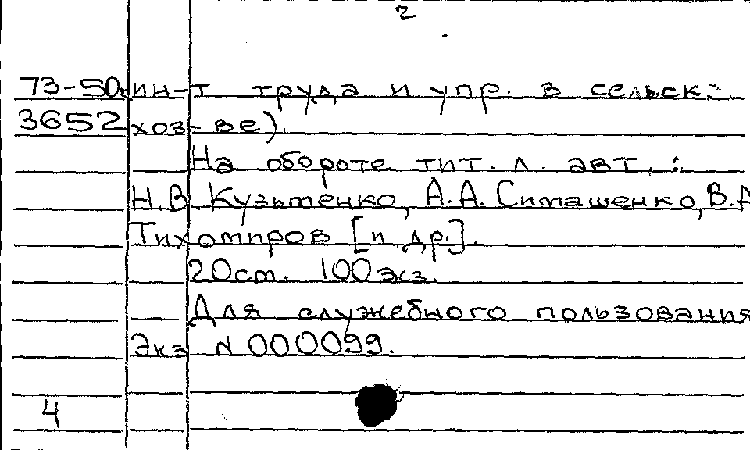 2
73-50 ин-т труда и упр. в сельск.
3652 хоз-ве).
На обороте тит. л. авт.:
Н.В. Кузьменко, А.А. Сималенко, В.А
Тихомиров [и др.].
20см. 100экз.
Для служебного пользования
Экз N 000099.
4